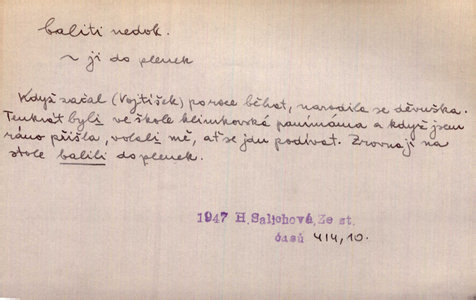 baliti nedok.
~ ji do plenek
Když začal (Vojtíšek) po roce běhat, narodila se děvuška.
Tenkrát byli ve škole klimkovská panímáma a když jsem
ráno přišla, volali mě, ať se jdu podívat. Zrovna ji na
stole balili do plenek.
1947 H. Salichová, Ze st.
časů 414, 10.